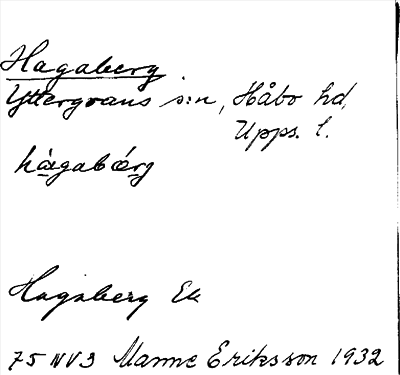 Hagaberg
Yttergrans s:n, Håbo hd,
Upps. l.
hàgabǽrg
Hagaberg Ek
75 NV3 Manne Eriksson 1932